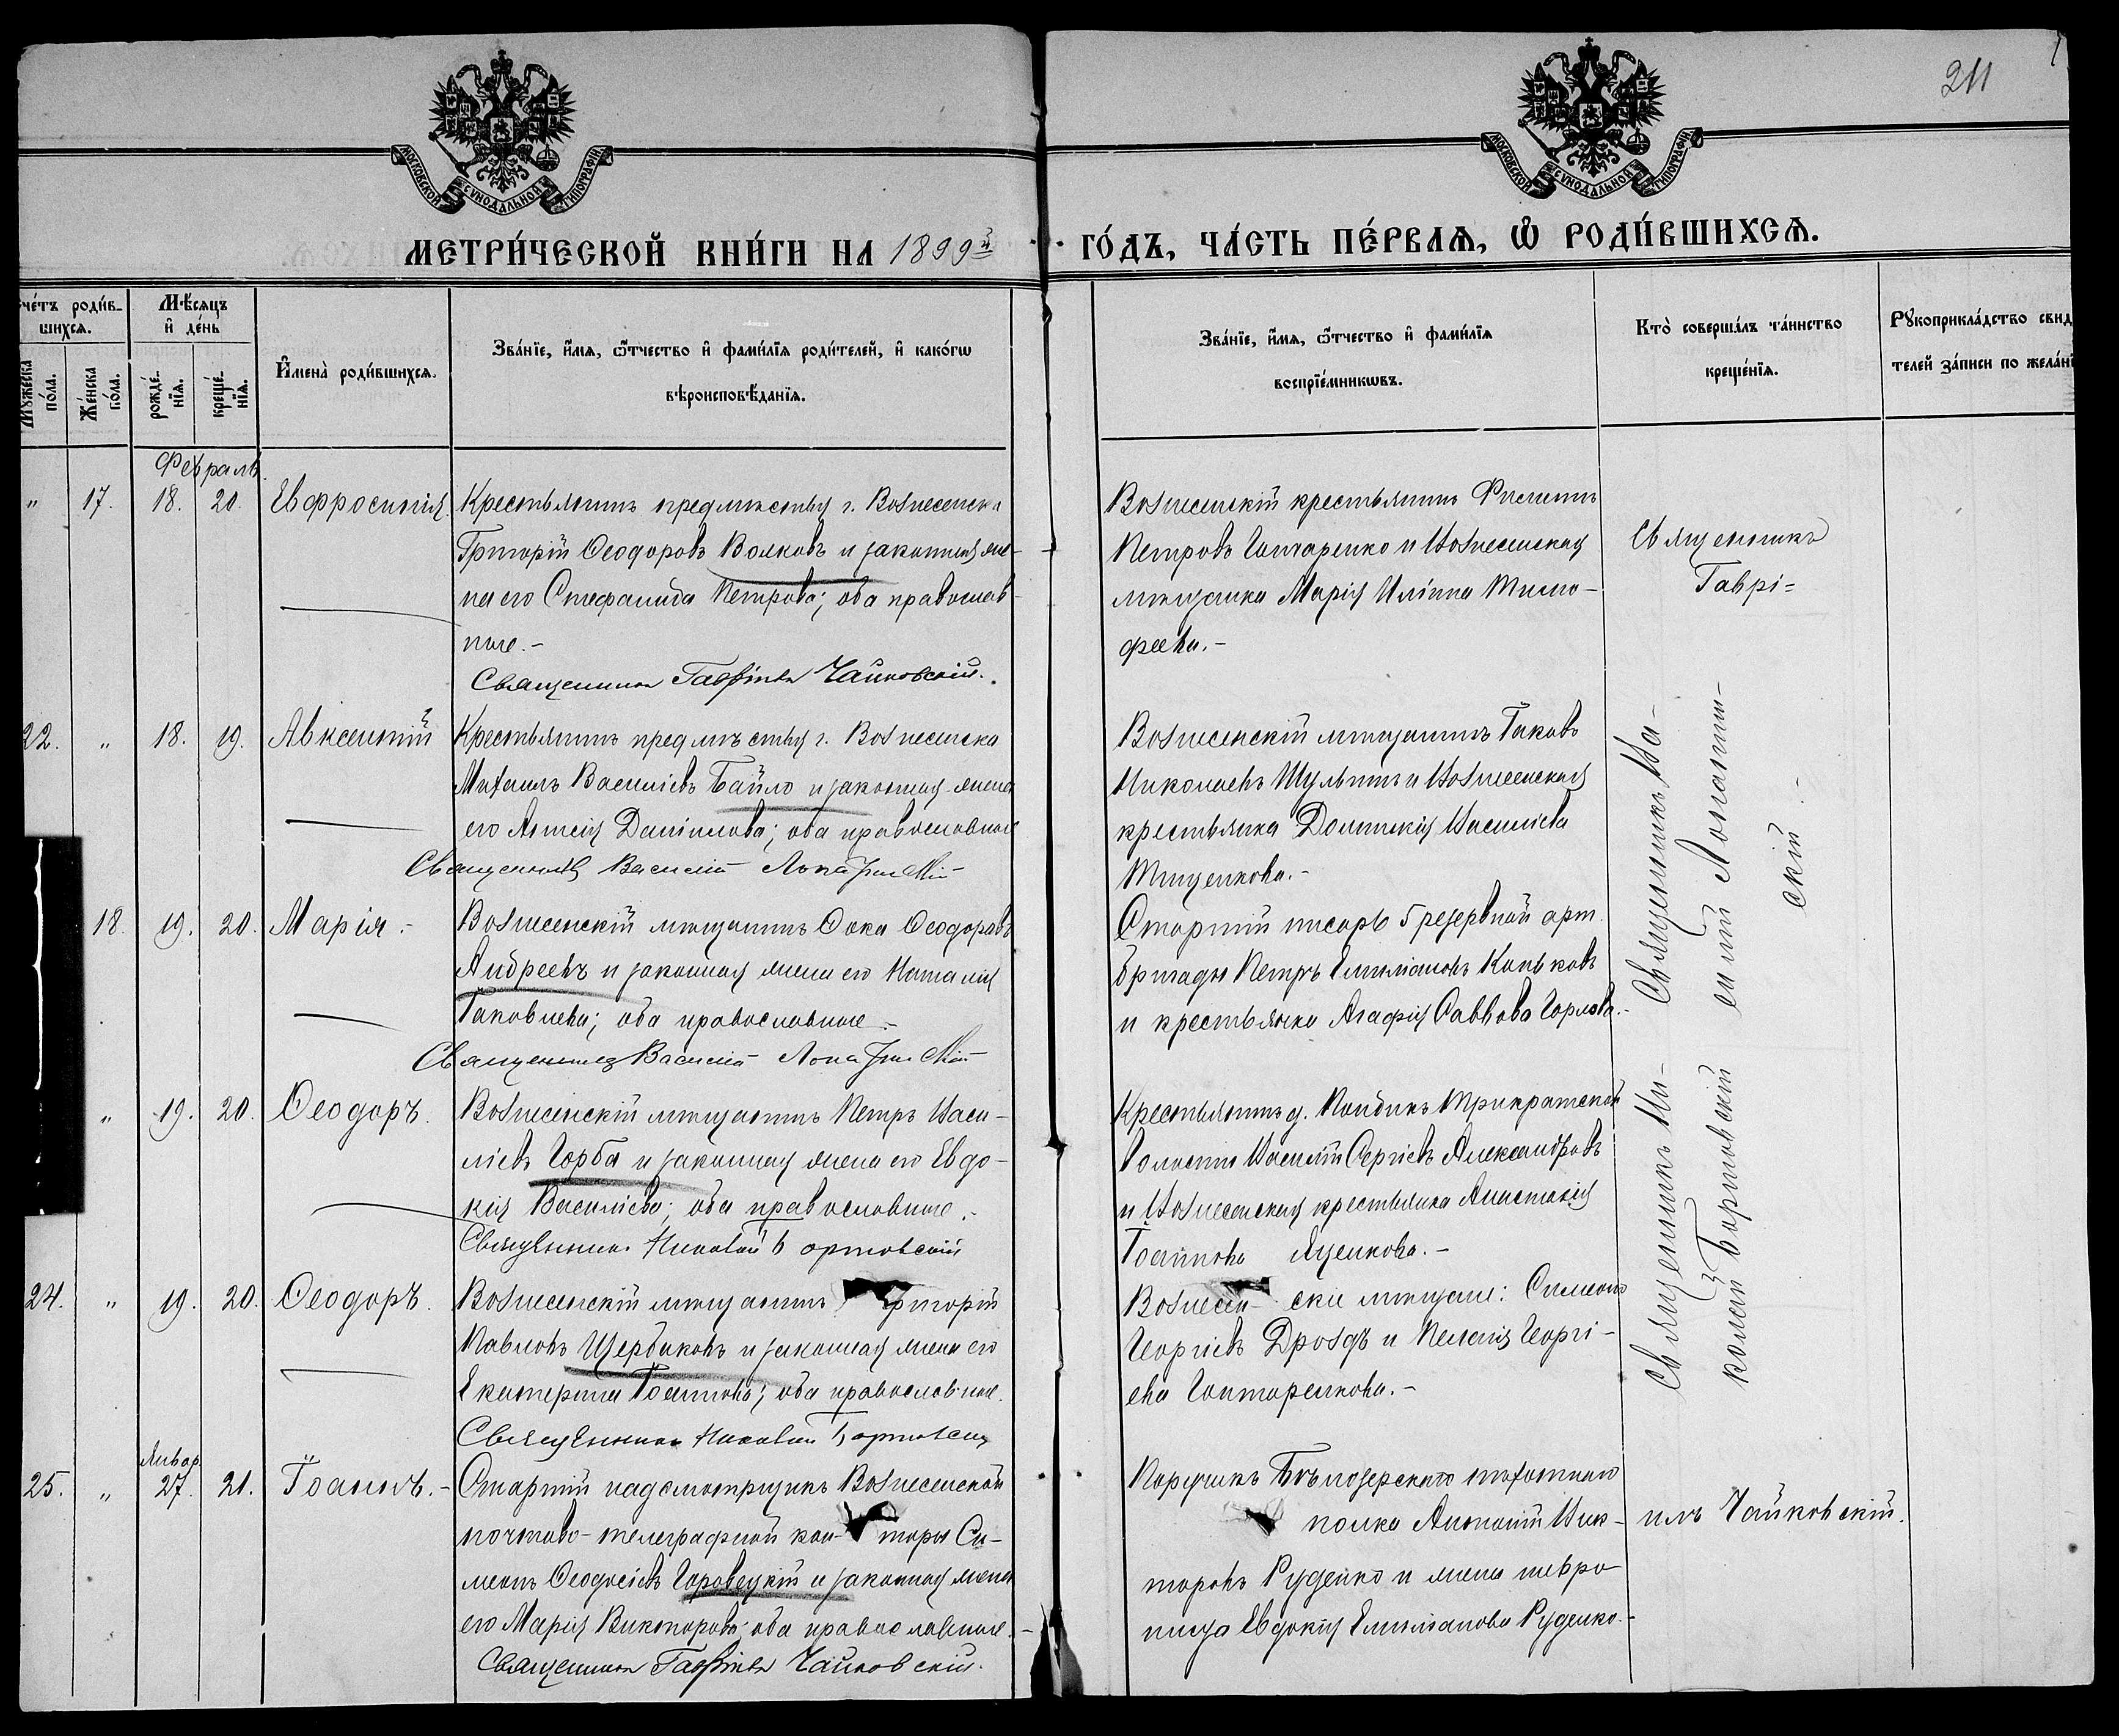 211
МОСКОВСКОЙ СѴНОДАЛЬНОЙ ТИПОГРАФІИ
МОСКОВСКОЙ СѴНОДАЛЬНОЙ ТИПОГРАФІИ
МЕТРИ́ЧЕСКОЙ КНИ́ГИ НА 1899й ГО́ДЪ, ЧА́СТЬ ПЕ́РВАѦ, Ѡ҆ РОДИ́ВШИХСѦ.
че́тъ роди́в-
шихсѧ.
Мꙋжеска по́ла.
Же́нска по́ла.
Мѣ́сѧцъ и҆ де́нь
рожде́-нїѧ.
креще́-нїѧ.
И҆мена̀ роди́вшихсѧ.
Зва́нїе, и҆́мѧ, ѻ҆́тчество и҆ фами́лїѧ роди́телей, и҆ како́гѡ
вѣроисповѣ́данїѧ.
Зва́нїе, и҆́мѧ, ѻ҆́тчество и҆ фами́лїѧ
воспрїе́мникѡвъ.
Кто̀ соверша́лъ та́инство
креще́нїѧ.
Рꙋкоприкла́дство свид
телей за́писи по жела́нї
Февраль
" 17. 18. 20. Евфросинія
Крестьянинъ предмѣстья г. Вознесенска
Григорій Ѳеодоровъ Волковъ и законная же-
на его Стефанида Петрова; оба православ-
ные.-
Священникъ Гавріилъ Чайковскій.
Вознесенскій крестьянинъ Филиппъ
Петровъ Гончаренко и Вознесенская
мѣщанка Марія Иліина Тимо-
феева.-
Священникъ
Гаврі=
22. " 18. 19. Авксентій
Крестьянинъ предмѣстья г. Вознесенска
Михаилъ Василіевъ Байло и законная жена
его Анисія Даніилова; оба православные
Священникъ Василій Лопатинскій
Вознесенскій мѣщанинъ Іаковъ
Николаевъ Шульгинъ и Вознесенская
крестьянка Домникія Василіева
Тищенкова.-
Священникъ Ва-
силій Лопатин-
скій.-
18. 19. 20. Марія.-
Вознесенскій мѣщанинъ Ѳока Ѳеодоровъ
Андреевъ и законная жена его Наталія
Іаковлева; оба православные.-
Священникъ Василій Лопатинскій
Старшій писарь 5 резервной арт.
бригады Петръ Емиліановъ Коньковъ
и крестьянка Агафія Саввова Горлова.-
" 19. 20. Ѳеодоръ.
Вознесенскій мѣщанинъ Петръ Васи-
ліевъ Горба и законная жена его Евдо-
кія Василіева; оба православные.-
Священникъ Николай Бортовскій
Крестьянинъ д. Трикратской
волости Василій Сергіевъ Александровъ
и Вознесенская крестьянка Анастасія
Іоаннова Яценкова.-
Священникъ Ни-
колай Бортовскій
24. " 19. 20. Ѳеодоръ.
Вознесенскій мѣщанинъ Григорій
Павловъ Щербаковъ и законная жена его
Екатерина Іоаннова; оба православные.
Священникъ Николай Бортовскій
Вознесен- скіе мѣщане: Симеонъ
Георгіевъ Дроздъ и Пелагія Георгі-
ева Гонтаренкова.-
Январ.
25. " 27. 21. Іоаннъ.-
Старшій надсмотрщикъ Вознесенской
почтово-телеграфной кон- торы Си-
меонъ Ѳеодосіевъ Горовецкій и законная жена
его Марія Викторова; оба православные.-
Священникъ Гавріилъ Чайковскій.
Поручикъ Бѣлозерскаго пѣхотнаго
полка Антоній Вик-
торовъ Руденко и жена
Евдокія Емиліанова Руденко.-
илъ Чайковскій.